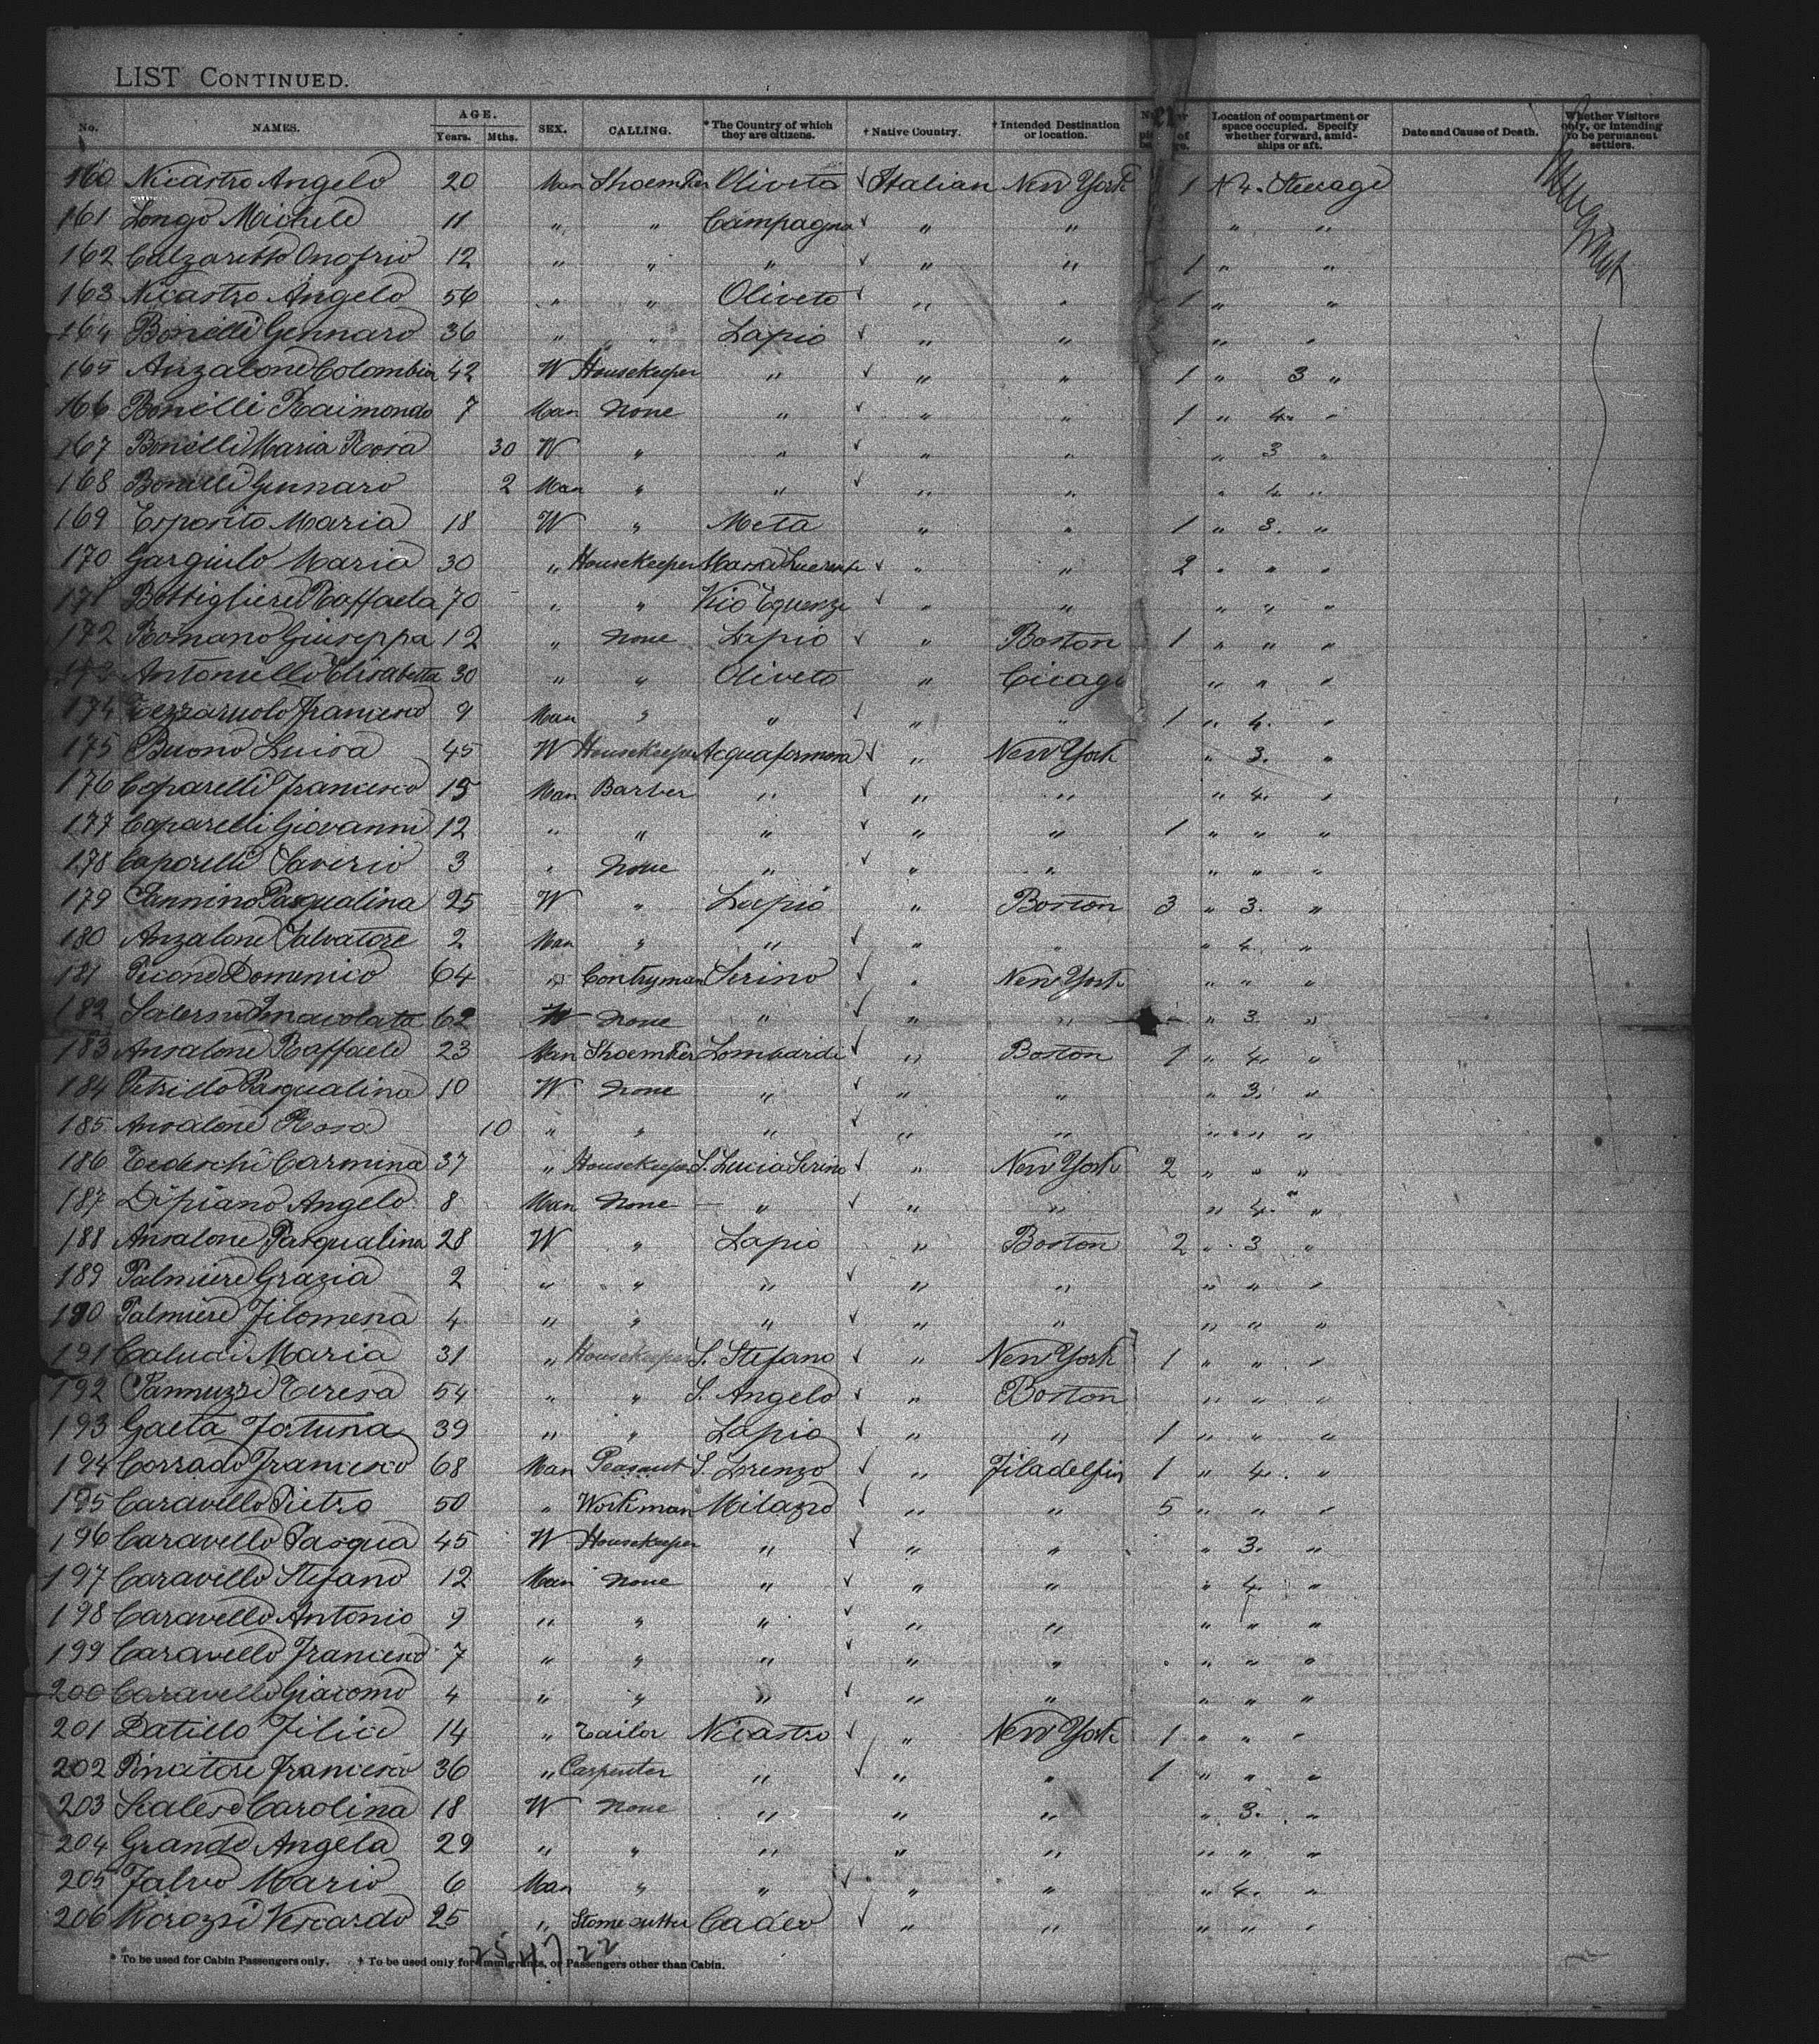 LIST CONTINUED.
No. NAMES. AGE. Years. Mths. SEX. CALLING. *The Country of which they are citizens. † Native Country. † Intended Destination or location. Location of compartment or space occupied. Specify whether forward, amid-ships or aft. Date and Cause of Death. Whether Visitors only, or intending to be permanent settlers.
160 Nicastro Angelo 20 Man Shoemker Oliveto ✓ Italian New York 1 N 4. Steerage
161 Longo Michele 11 " " Campagna ✓ " " " "
162 Calzaretto Onofrio 12 " " " ✓ " " 1 " "
163 Nicastro Angelo 56 " " Oliveto ✓ " " 1 " "
164 Bonelli Gennaro 36 " " Lapio ✓ " " " "
165 Anzalone Colombia 42 W Housekeeper " ✓ " " 1 " 3 "
166 Bonelli Raimondo 7 Man None " ✓ " " 1 " 4. "
167 Bonelli Maria Rosa 30 W " " ✓ " " " 3 "
168 Bonelli Gennaro 2 Man " " ✓ " " " 4 "
169 Esposito Maria 18 W " Meta " " 1 " 3. "
170 Gargiulo Maria 30 " Housekeeper Massa ✓ " " 2 " " "
171 Bottiglieri Raffaela 70 " " Vico Equenze ✓ " " " " "
172 Romano Giuseppa 12 " None Lapio ✓ " Boston 1 " " "
173 Antoniello Elisabetta 30 " " Oliveto " Cicago " " "
174 Francesco 9 Man " " ✓ " " 1 " 4. "
175 Buono Luisa 45 W Housekeeper Acquaformosa ✓ " New York " 3. "
176 Caparelli Francesco 15 Man Barber " ✓ " " " 4. "
177 Caparelli Giovanni 12 " " " ✓ " " 1 " " "
178 Caporelli Saverio 3 " None " ✓ " " " " "
179 Pasqualina 25 W " Lapio " Boston 3 " 3. "
180 Anzalone Salvatore 2 Man " " ✓ " " " 4 "
181 Pecone Domenico 64 " Contryman Serino ✓ " New York " " "
182 Salerno Imacolata 62 W None " ✓ " " " 3. "
183 Ansalone Raffaele 23 Man Shoemker Lombardi ✓ " Boston 1 " 4. "
184 Petrillo Pasqualina 10 W None " ✓ " " " 3. "
185 Ansalone Rosa 10 " " " ✓ " " " " "
186 Tedeschi Carmina 37 " Housekeeper S. Lucia Serino ✓ " New York 2 " " "
187 Dipiano Angelo 8 Man None " ✓ " " " 4. "
188 Ansalone Pasqualina 28 W " Lapio " Boston 2 " 3 "
189 Palmiere Grazia 2 " " " ✓ " " " " "
190 Palmiere Filomena 4 " " " ✓ " " " " "
191 Caluci Maria 31 " Housekeeper S. Stefano ✓ " New York 1 " " "
192 Iannuzzi Teresa 54 " " S. Angelo ✓ " Boston " " "
193 Gaeta Fortuna 39 " " Lapio ✓ " " 1 " " "
194 Corrado Francesco 68 Man Peasant S. Lorenzo ✓ " Filadelfia 1 " 4. "
195 Caravello Pietro 50 " Workman Milazzo ✓ " " 5 " " "
196 Caravello Pasqua 45 W Housekeeper " ✓ " " " 3. "
197 Caravello Stefano 12 Man None " ✓ " " " 4. "
198 Caravello Antonio 9 " " " ✓ " " " " "
199 Caravello Francesco 7 " " " ✓ " " " " "
200 Caravello Giacomo 4 " " " ✓ " " " " "
201 Datillo Filice 14 " Tailor Nicastro ✓ " New York 1 " " "
202 Francesco 36 " Carpenter " ✓ " " 1 " " "
203 Scalese Carolina 18 W None " " " " 3. "
204 Grande Angela 29 " " " " " " " "
205 Falvo Mario 6 Man " " ✓ " " " 4. "
206 25 " Stonecutter ✓ " " " " "
* To be used for Cabin Passengers only. † To be used only for Immigrants, or Passengers other than Cabin.